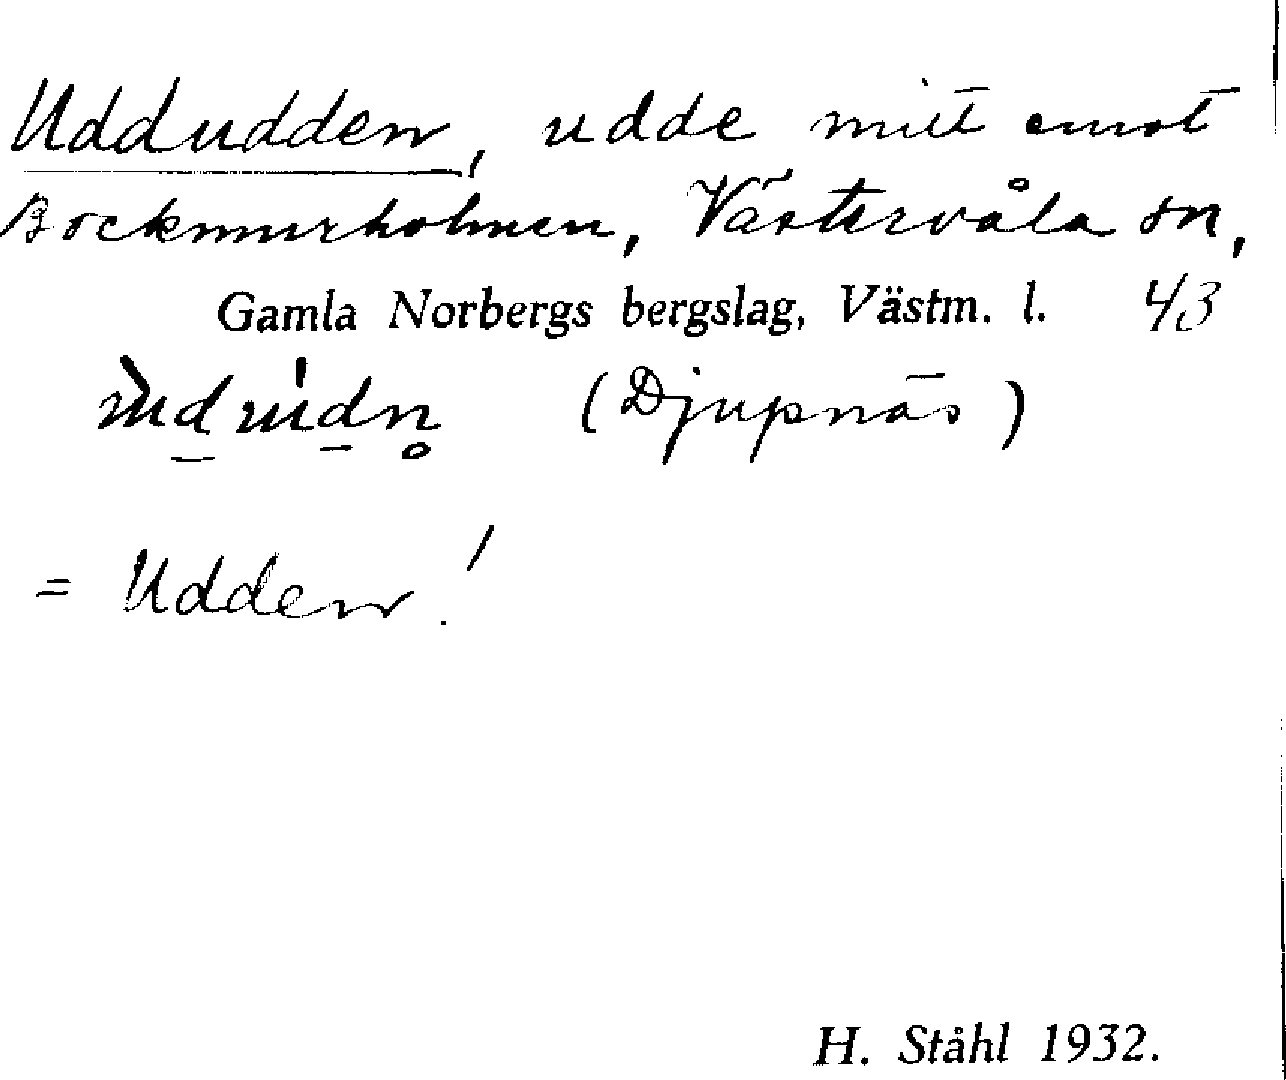 Uddudden, udde mitt emot
Bockmurholmen, Västervåla sn,
Gamla Norbergs bergslag, Västm. l. 43
(Djupnäs)
= Udden!
H. Ståhl 1932.